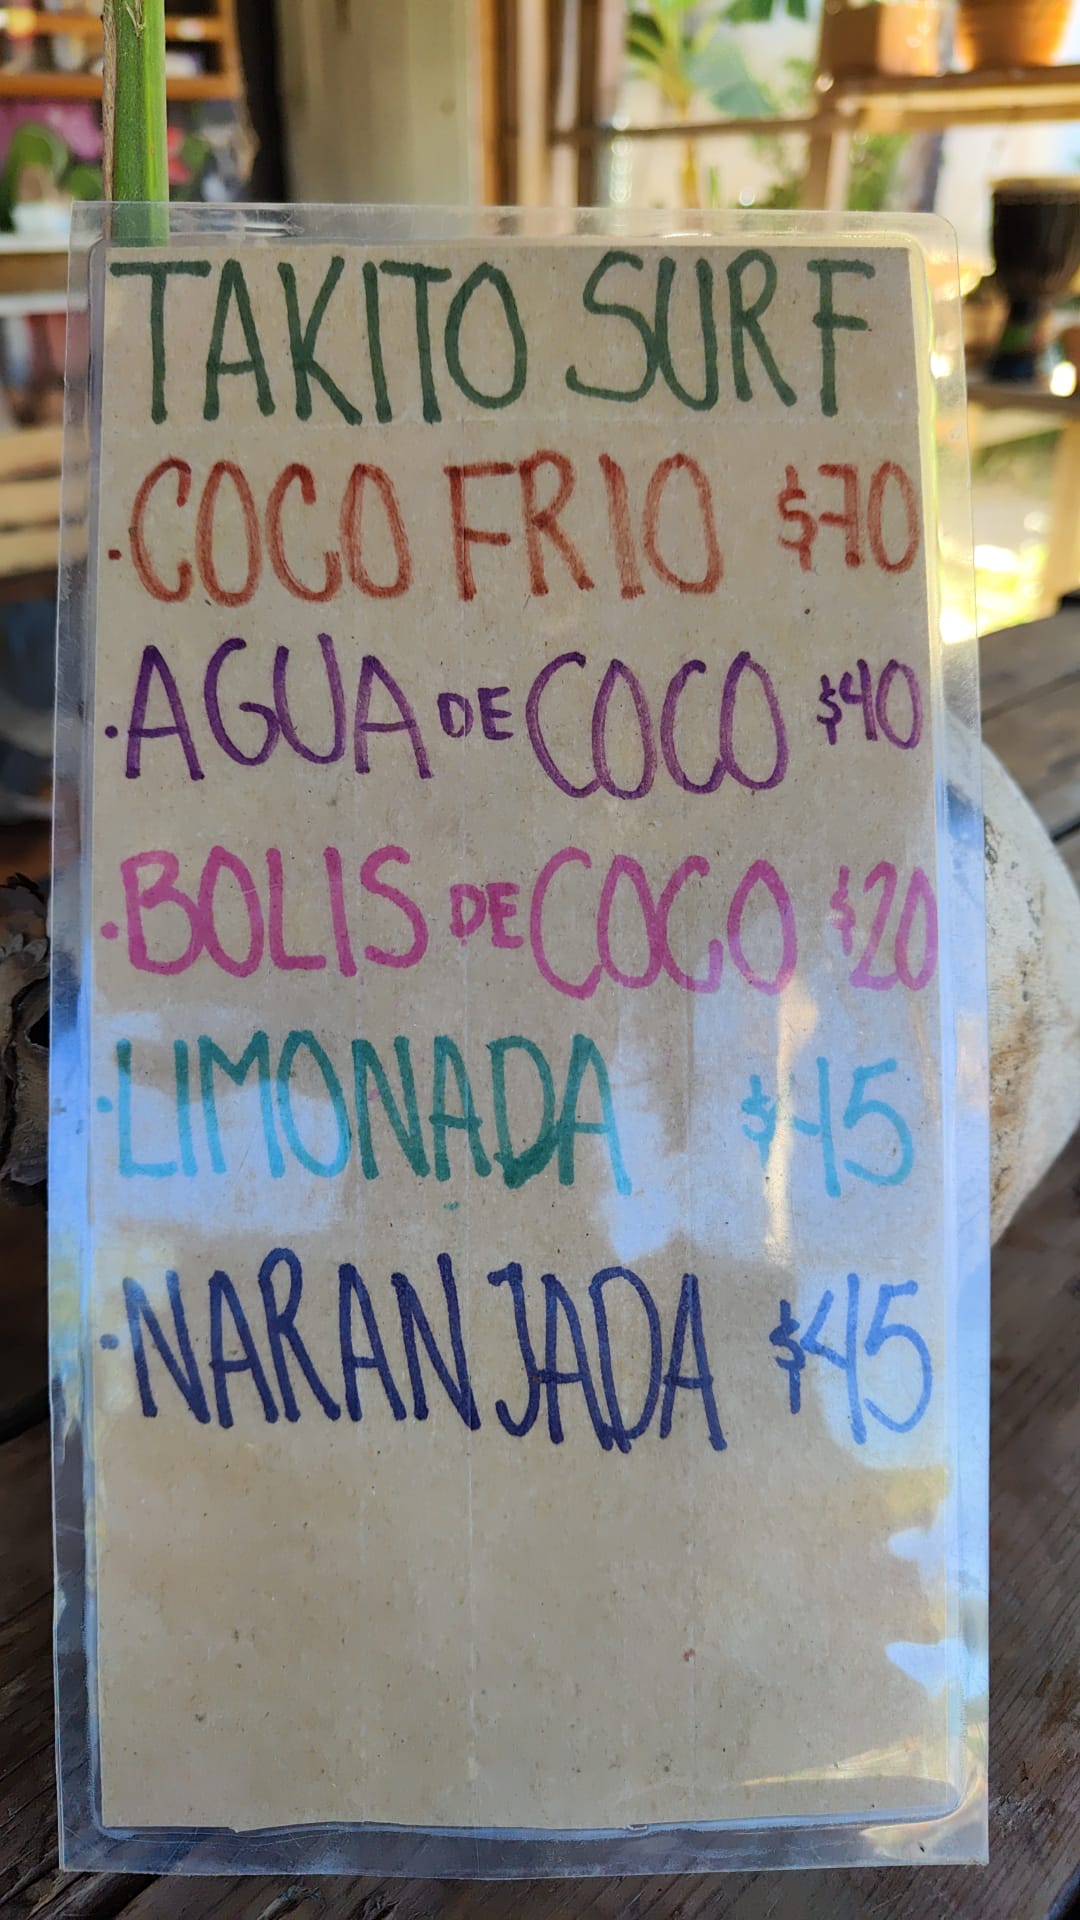 TAKITO SURF
·COCO FRIO $70
·AGUA DE COCO $40
·BOLIS DE COCO $20
·LIMONADA $45
·NARANJADA $45